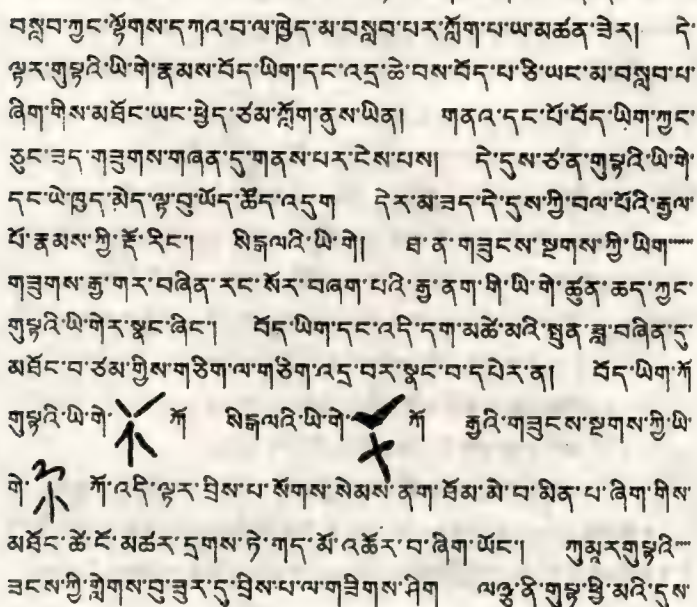 བསླབ་ཀྱང་ལྷོགས་དཀའ་བ་ལ་ཁྱེད་མ་བསླབ་པར་ཀློག་པ་ཡ་མཚན་ཟེར།  དེ་
ལྟར་གུཔྟའི་ཡི་གེ་རྣམས་བོད་ཡིག་དང་འདྲ་ཆེ་བས་བོད་པ་ཅི་ཡང་མ་བསླབ་པ་
ཞིག་གིས་མཐོང་ཡང་ཕྱེད་ཙམ་ཀློག་ནུས་ཡིན།  གནའ་དང་པོ་བོད་ཡིག་ཀྱང་
ཅུང་ཟད་གཟུགས་གཞན་དུ་གནས་པར་ངེས་པས།  དེ་དུས་ཙ་ན་གུཔྟའི་ཡི་གེ་
དང་ཡེ་ཁྱད་མེད་ལྟ་བུ་ཡོད་ཚོད་འདུག  དེར་མ་ཟད་དེ་དུས་ཀྱི་བལ་པོའི་རྒྱལ་
པོ་རྣམས་ཀྱི་རྡོ་རིང་།  སིངྒལའི་ཡི་གེ།  ཐ་ན་གཟུངས་སྔགས་ཀྱི་ཡིག་
གཟུགས་རྒྱ་གར་བཞིན་རང་སོར་བཞག་པའི་རྒྱ་ནག་གི་ཡི་གེ་ཚུན་ཆད་ཀྱང་
གུཔྟའི་ཡི་གེར་སྣང་ཞིང་།  བོད་ཡིག་དང་འདི་དག་མཚེ་མའི་སྤུན་ཟླ་བཞིན་དུ་
མཐོང་བ་ཙམ་གྱིས་གཅིག་ལ་གཅིག་འདྲ་བར་སྣང་བ་དཔེར་ན།  བོད་ཡིག་ཀོ
གུཔྟའི་ཡི་གེ་ ཀོ  སིངྒལའི་ཡི་གེ་ ཀོ  རྒྱའི་གཟུངས་སྔགས་ཀྱི་ཡི་
གེ་ ཀོ་འདི་ལྟར་བྲིས་པ་སོགས་སེམས་ནག་ཐོམ་མེ་བ་མིན་པ་ཞིག་གིས་
མཐོང་ཚེ་ངོ་མཚར་དྲགས་ཏེ་གད་མོ་འཆོར་བ་ཞིག་ཡོང་།  ཀུམཱརགུཔྟའི་
ཟངས་ཀྱི་གླེགས་བུ་ཟུར་དུ་བྲིས་པ་ལ་གཟིགས་ཤིག  ལཉྫ་ནི་གུཔྟ་ཕྱི་མའི་དུས་